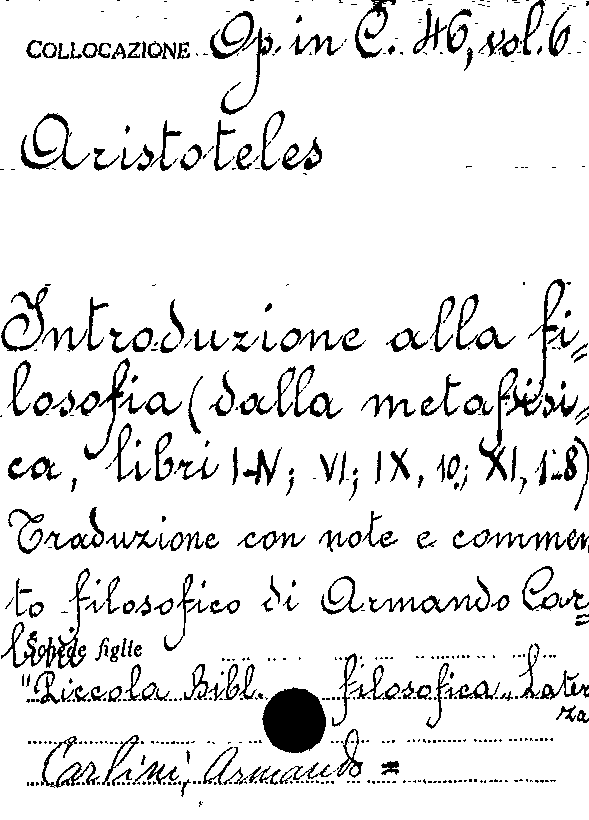 COLLOCAZIONE Op. in C. 46, vol. 6
Aristoteles
Introduzione alla fi=
losofia (dalla metafisi=
ca, libri I-IV; VI; IX, 10; XI, 1-8)
Traduzione con note e commen
to filosofico di Armando Car=
lini
Schede figlie
"Piccola Bibl. filosofica„ Later
za
Carlini, Armando =